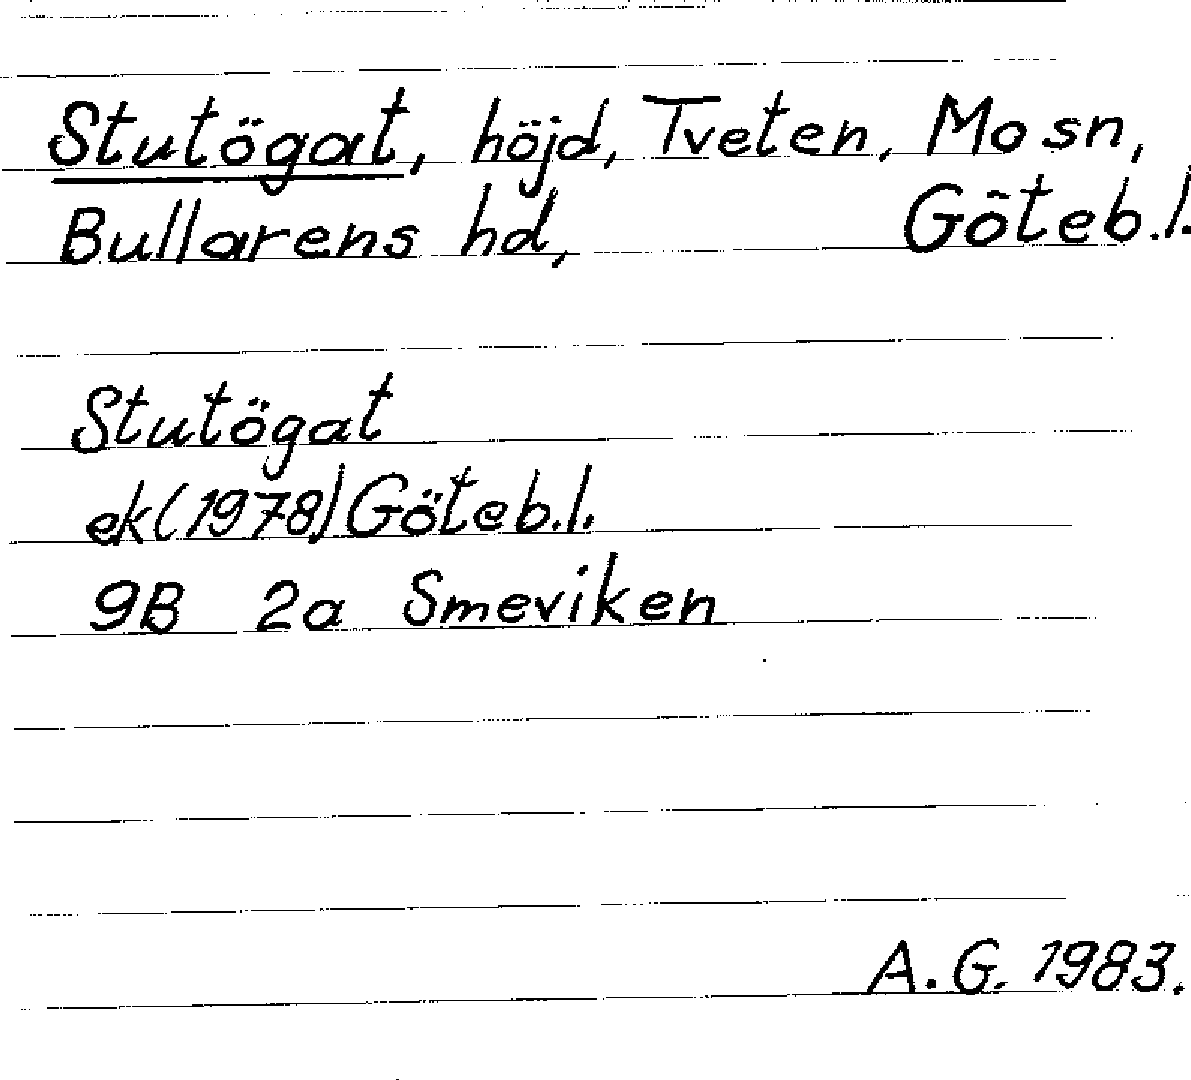 Stutögat, höjd, Tveten, Mo sn,
Bullarens hd, Göteb.l.
Stutögat
ek (1978) Göteb.l.
9B 2a Smeviken
A.G. 1983.